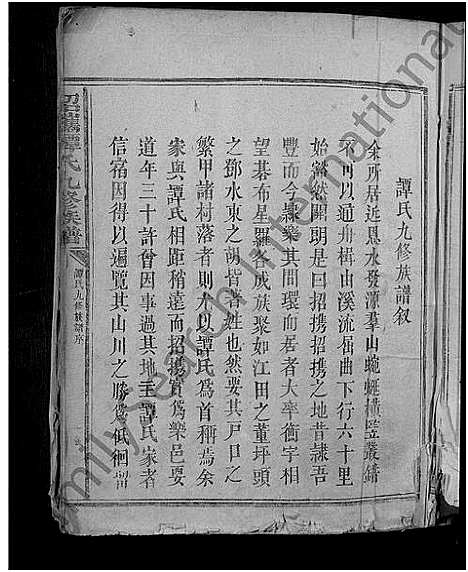 譚氏九修族譜叙
余所居近恩水發源羣山蜿蜒橫亙叢錯
不可以通舟楫山溪流屈曲下行六十里
始谿然開朗是曰招携招携之地昔隸吾
豐而今隸樂其間環而居者大率衡宇相
望碁布星羅各成族聚如江田之董坪頭
之鄧水東之胡皆著姓也然要其戸口之
繁甲諸村落者則水以譚氏爲首稱焉矣
家與譚氏相距稍遠而招携實爲樂邑要
道年三十許曾因事過其地主譚氏家者
信宿因得以遍覽其山川之勝爲低徊留
招携譚氏九修族譜
譚氏九修族譜序
FamilySearch International